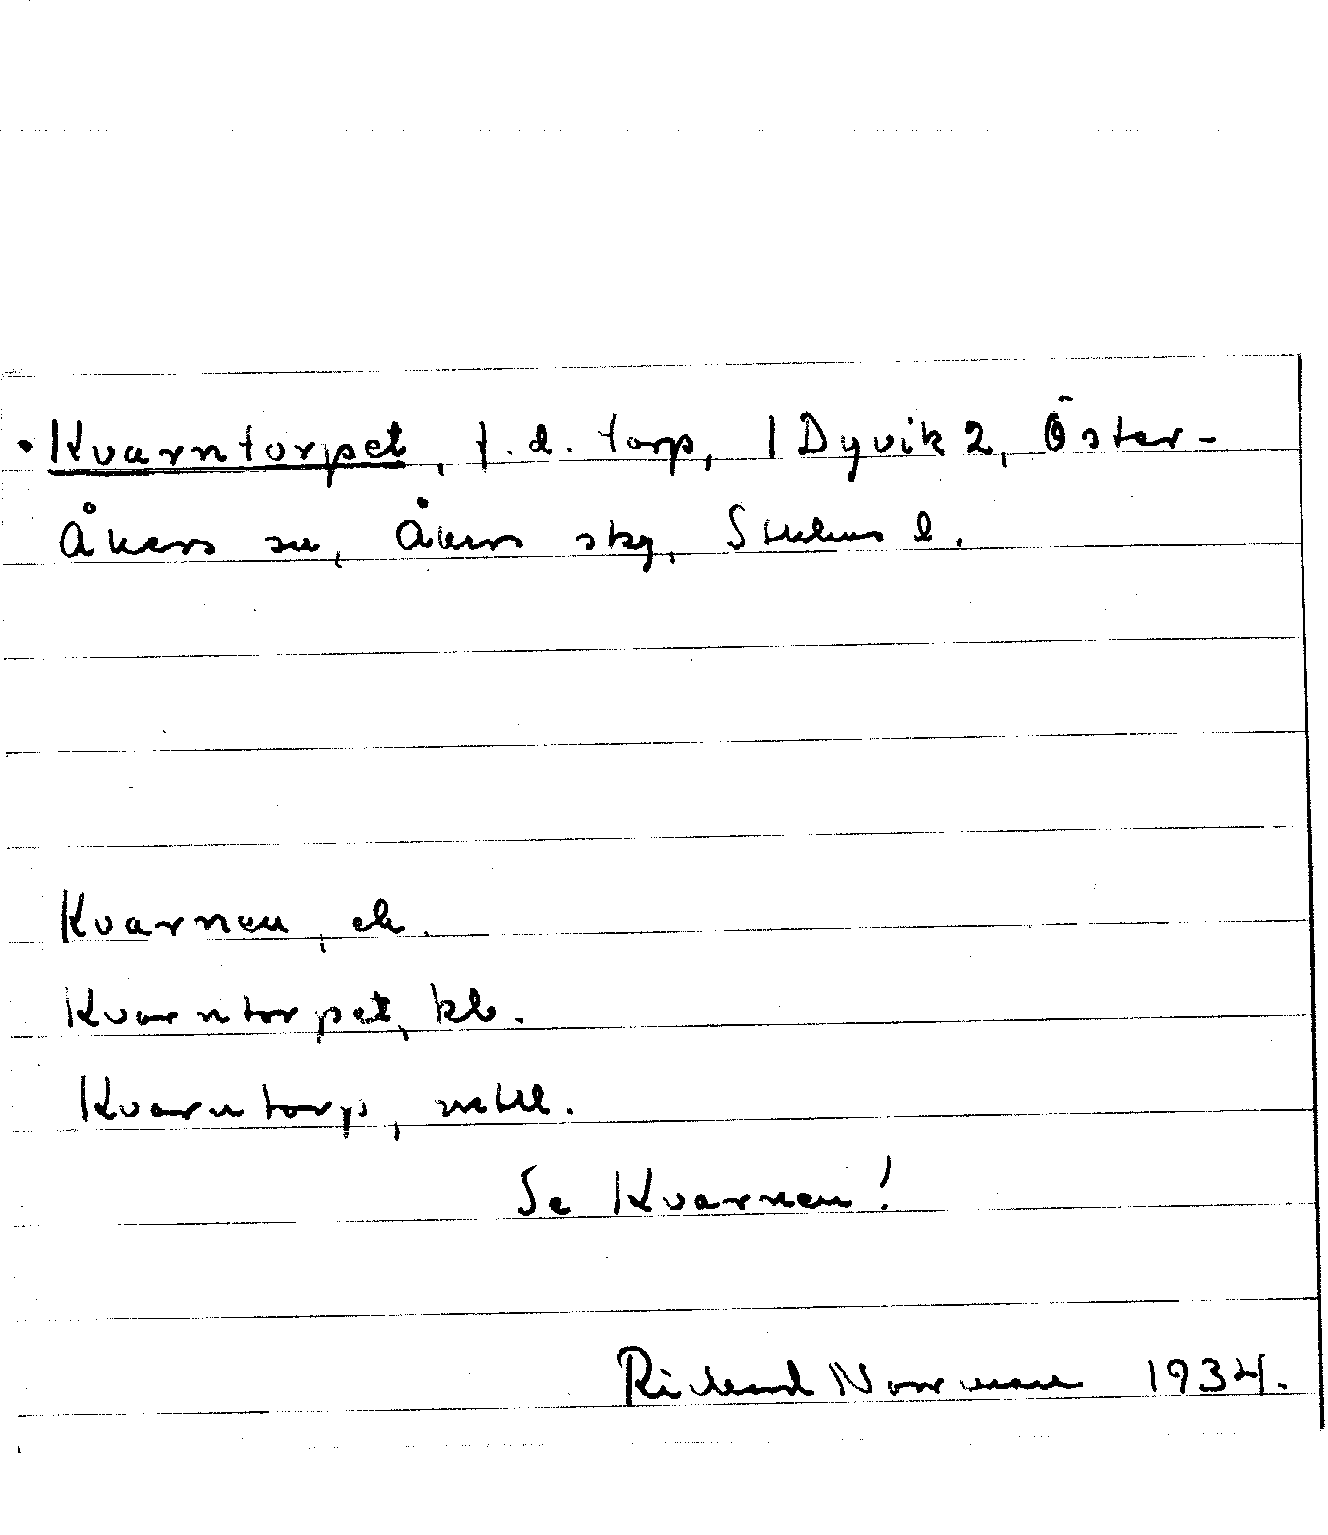 • Kvarntorpet, f. d. torp, 1 Dyvik 2, Öster-
Åkers sn, Åkers skg, Sthlms l.
Kvarnen, ek.
Kvarntorpet, kb.
Kvarntorp, mtll.
Se Kvarnen!
Richard Norrman 1934.